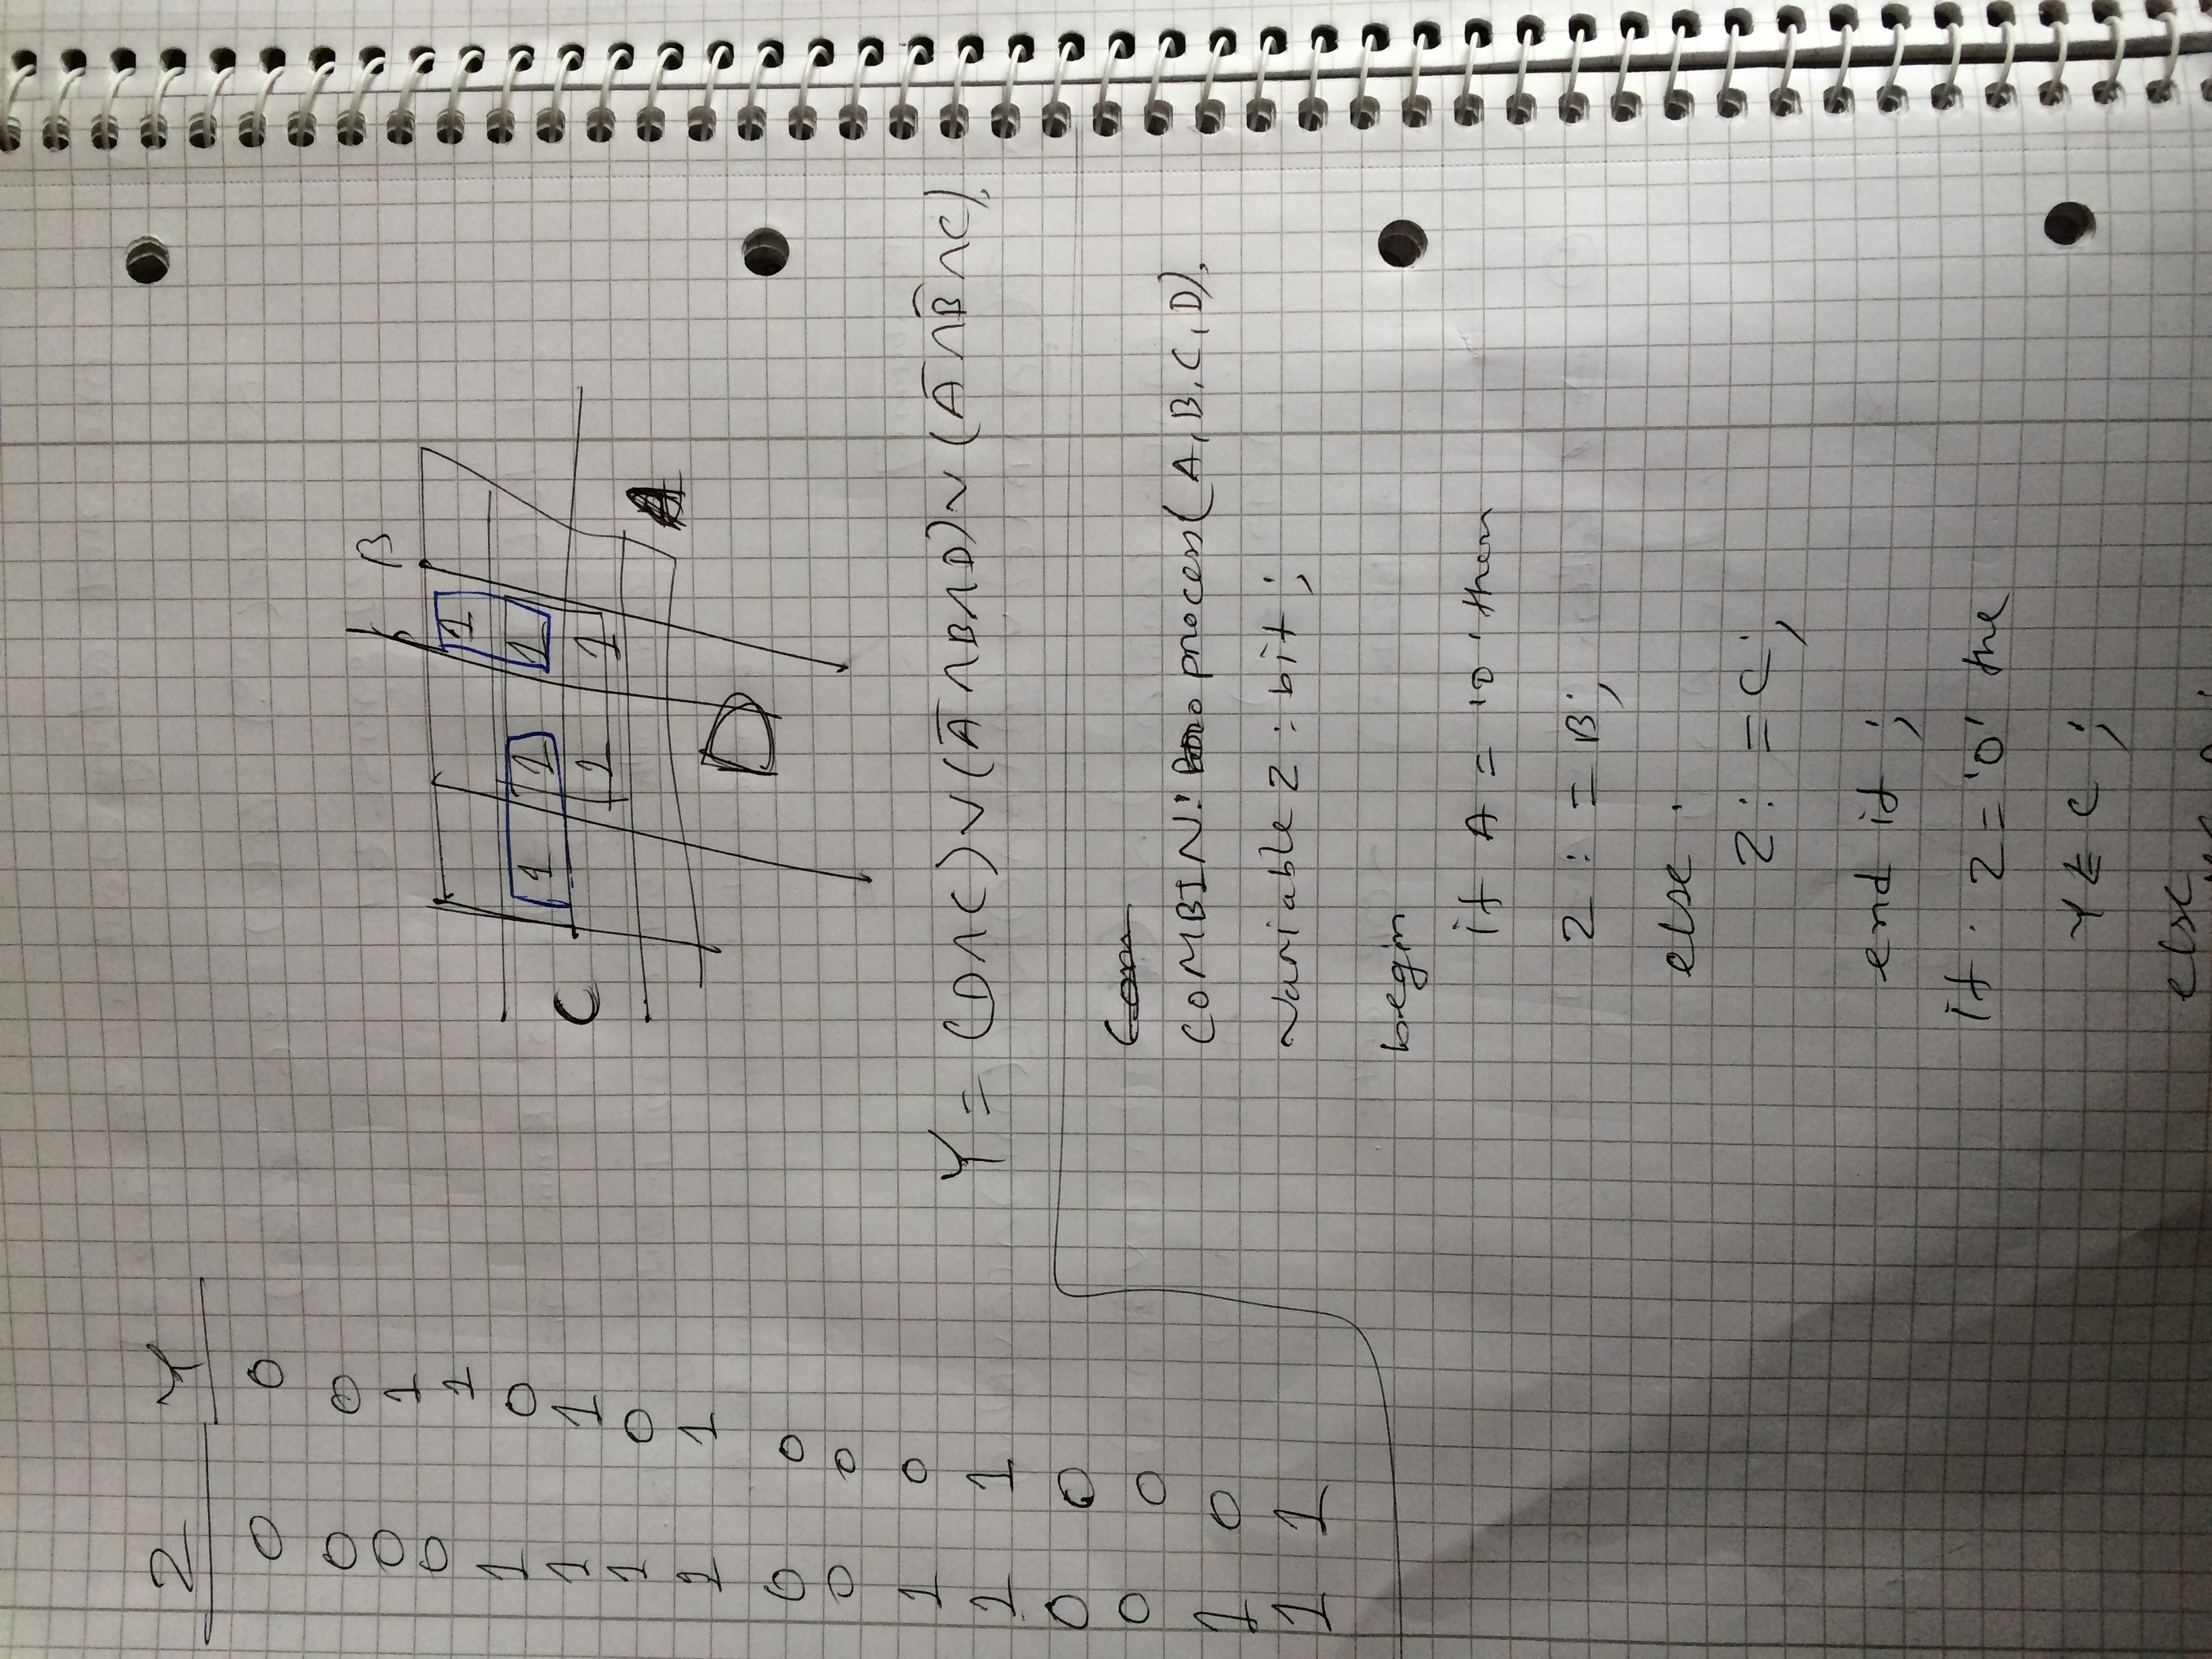 Z Y
0 0
0 0
0 1
0 1
1 0
1 1
1 0
1 1
0 0
0 0
1 0
1 1
0 0
0 0
1 0
1 1
B
1
1 1 1
C
1 1
A
D
Y = (D∧C)∨(A̅∧B∧D)∨(A̅∧B̅∧C).
Com
COMBIN: process(A,B,C,D).
Variable Z : bit ;
begin
if A = '0' then
Z : = B;
else .
Z : = C;
end if ;
if . Z = '0' the
Y <= C ;
else